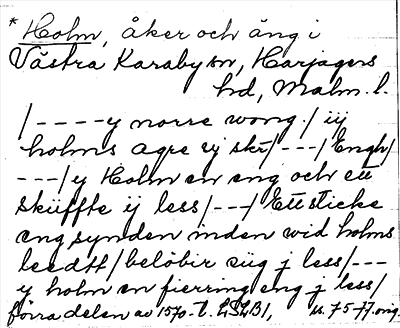 * Holm, åker och äng i
Västra Karaby sn, Harjagers
hd, Malm. l.
/----y norre wong./ iij
holms agre vj skr/---/Engh/
---/y Holm en eng och ett
skiiffte ij less/---/Ett sticke
eng synden inden wid holms
leedtt/beløbir siig j less/---
y holm en fierring eng j less/
förra delen av 1570-t. LSLB1, u. 75 77. orig.